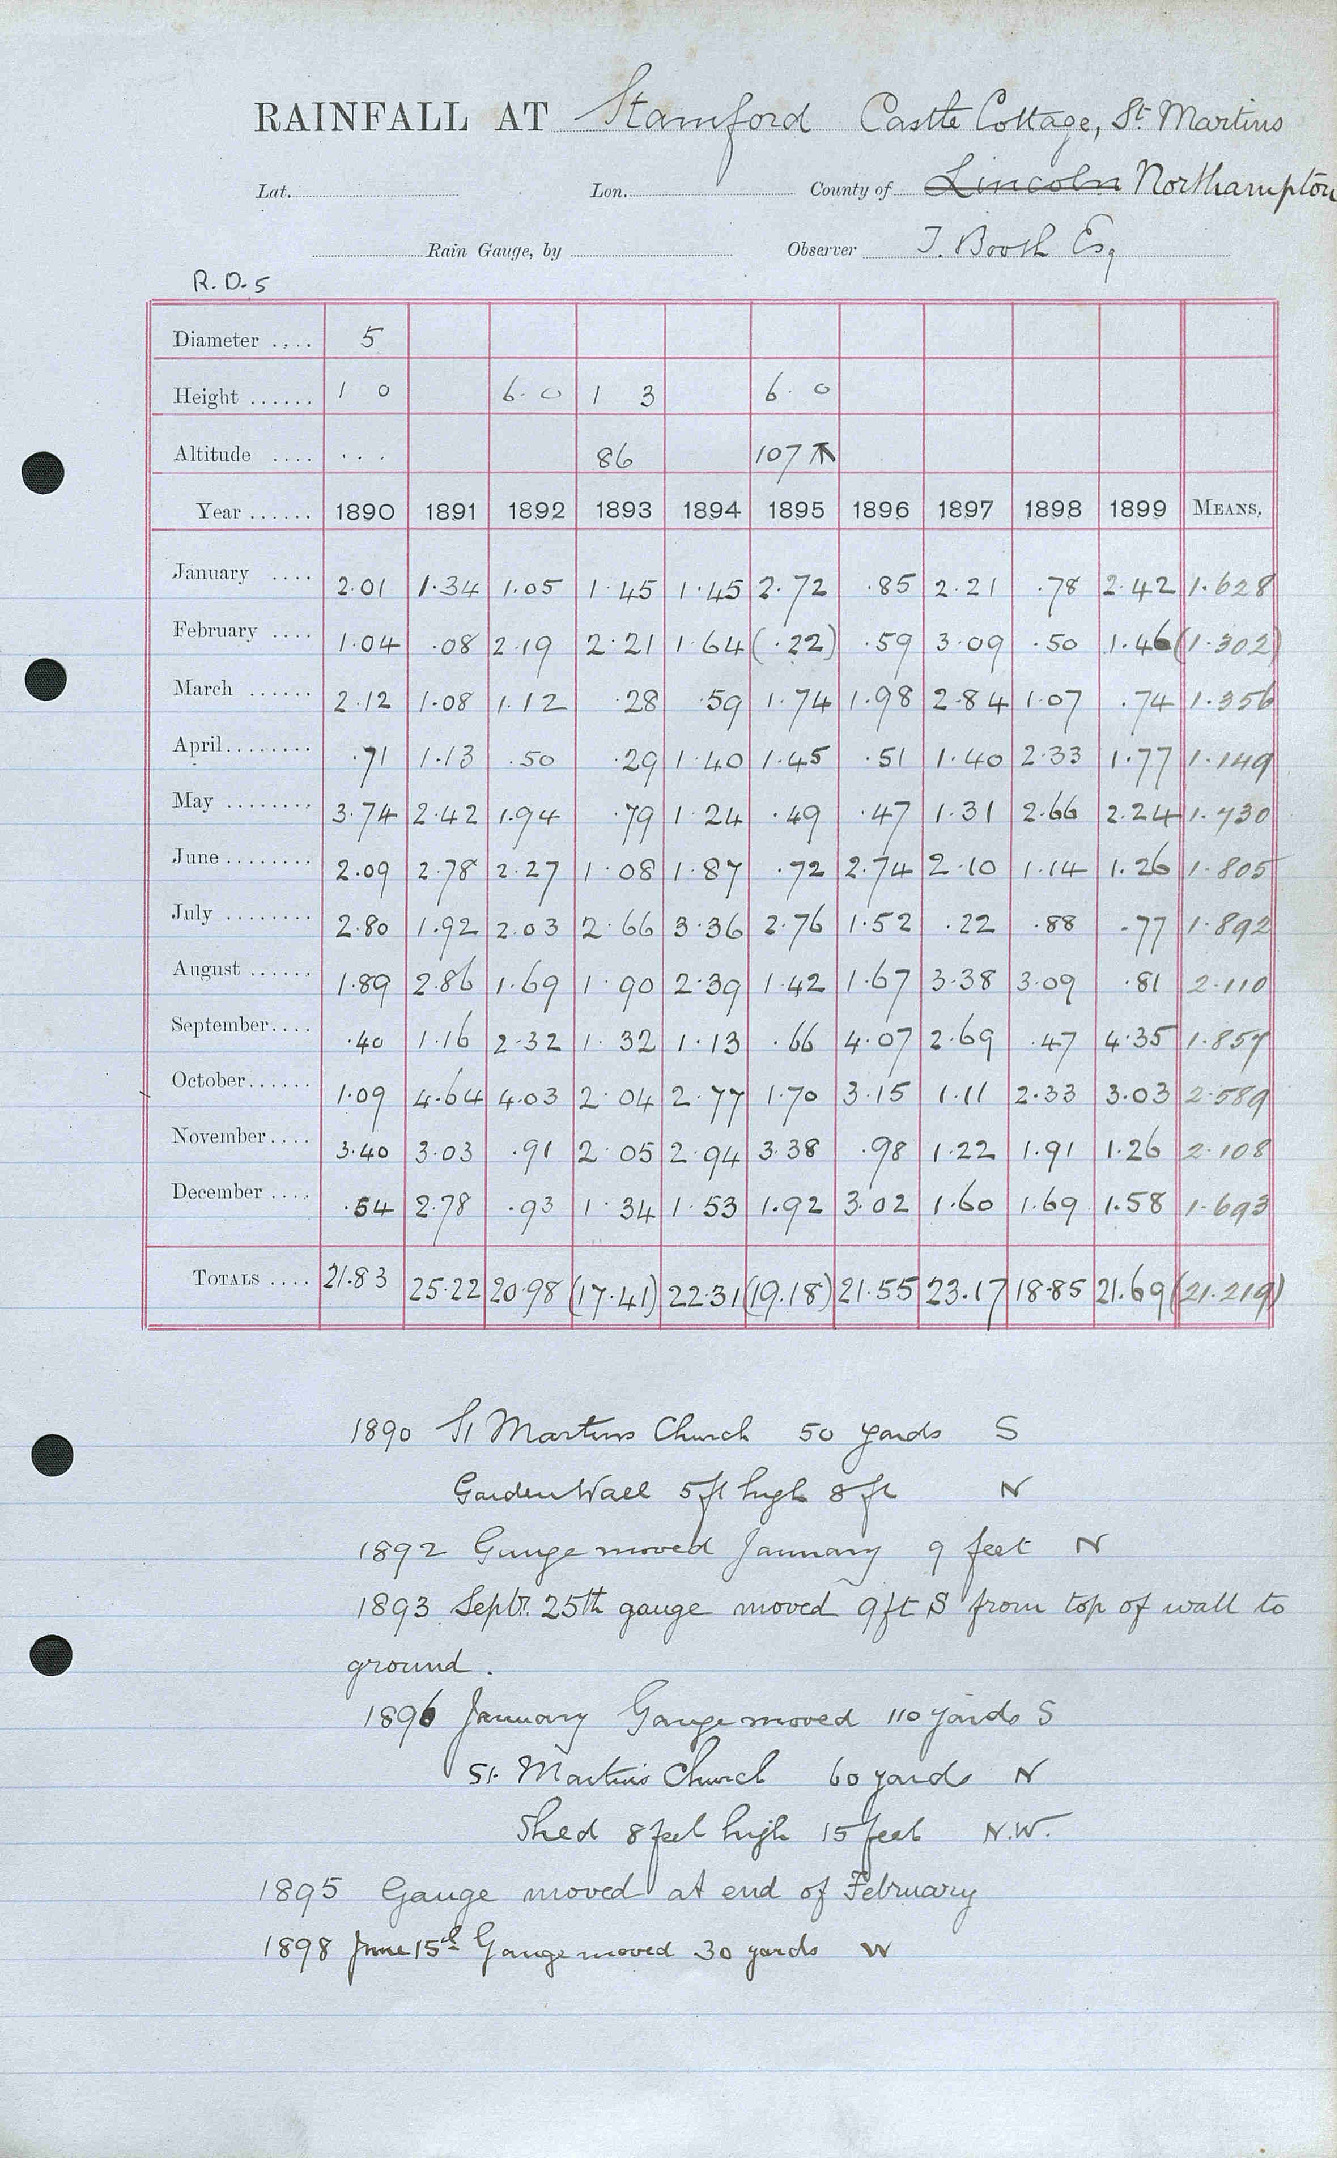 RAINFALL AT Stamford Castle Cottage, St. Martins
Lat. Lon. County of Lincoln Northampton
Rain Gauge, by Observer J. Booth Esq
R. D. 5
Diameter .... 5
Height ...... 1 0 6. 0 1 3 6. 0
Altitude .... ... 86 107
Year ...... 1890 1891 1892 1893 1894 1895 1896 1897 1898 1899 MEANS.
January .... 2.01 1.34 1.05 1.45 1.45 2.72 .85 2.21 .78 2.42 1.628
February .... 1.04 .08 2.19 2.21 1.64 (.22) .59 3.09 .50 1.46 (1.302)
March ...... 2.12 1.08 1.12 .28 .59 1.74 1.98 2.84 1.07 .74 1.356
April........ .71 1.13 .50 .29 1.40 1.45 .51 1.40 2.33 1.77 1.149
May ........ 3.74 2.42 1.94 .79 1.24 .49 .47 1.31 2.66 2.24 1.730
June ........ 2.09 2.78 2.27 1.08 1.87 .72 2.74 2.10 1.14 1.26 1.805
July ........ 2.80 1.92 2.03 2.66 3.36 2.76 1.52 .22 .88 .77 1.892
August ...... 1.89 2.86 1.69 1.90 2.39 1.42 1.67 3.38 3.09 .81 2.110
September.... .40 1.16 2.32 1.32 1.13 .66 4.07 2.69 .47 4.35 1.857
October...... 1.09 4.64 4.03 2.04 2.77 1.70 3.15 1.11 2.33 3.03 2.589
November.... 3.40 3.03 .91 2.05 2.94 3.38 .98 1.22 1.91 1.26 2.108
December .... .54 2.78 .93 1.34 1.53 1.92 3.02 1.60 1.69 1.58 1.693
TOTALS .... 21.83 25.22 20.98 (17.41) 22.31 (19.18) 21.55 23.17 18.85 21.69 (21.219)
1890 St Martins Church 50 yards S
Garden Wall 5ft high 8 ft N
1892 Gauge moved January 9 feet N
1893 Septr. 25th gauge moved 9ft S from top of wall to
ground.
1896 January Gauge moved 110 yards S
St. Martin's Church 60 yards N
Shed 8 feet high 15 feet N.W.
1895 Gauge moved at end of February
1898 June 15th Gauge moved 30 yards W